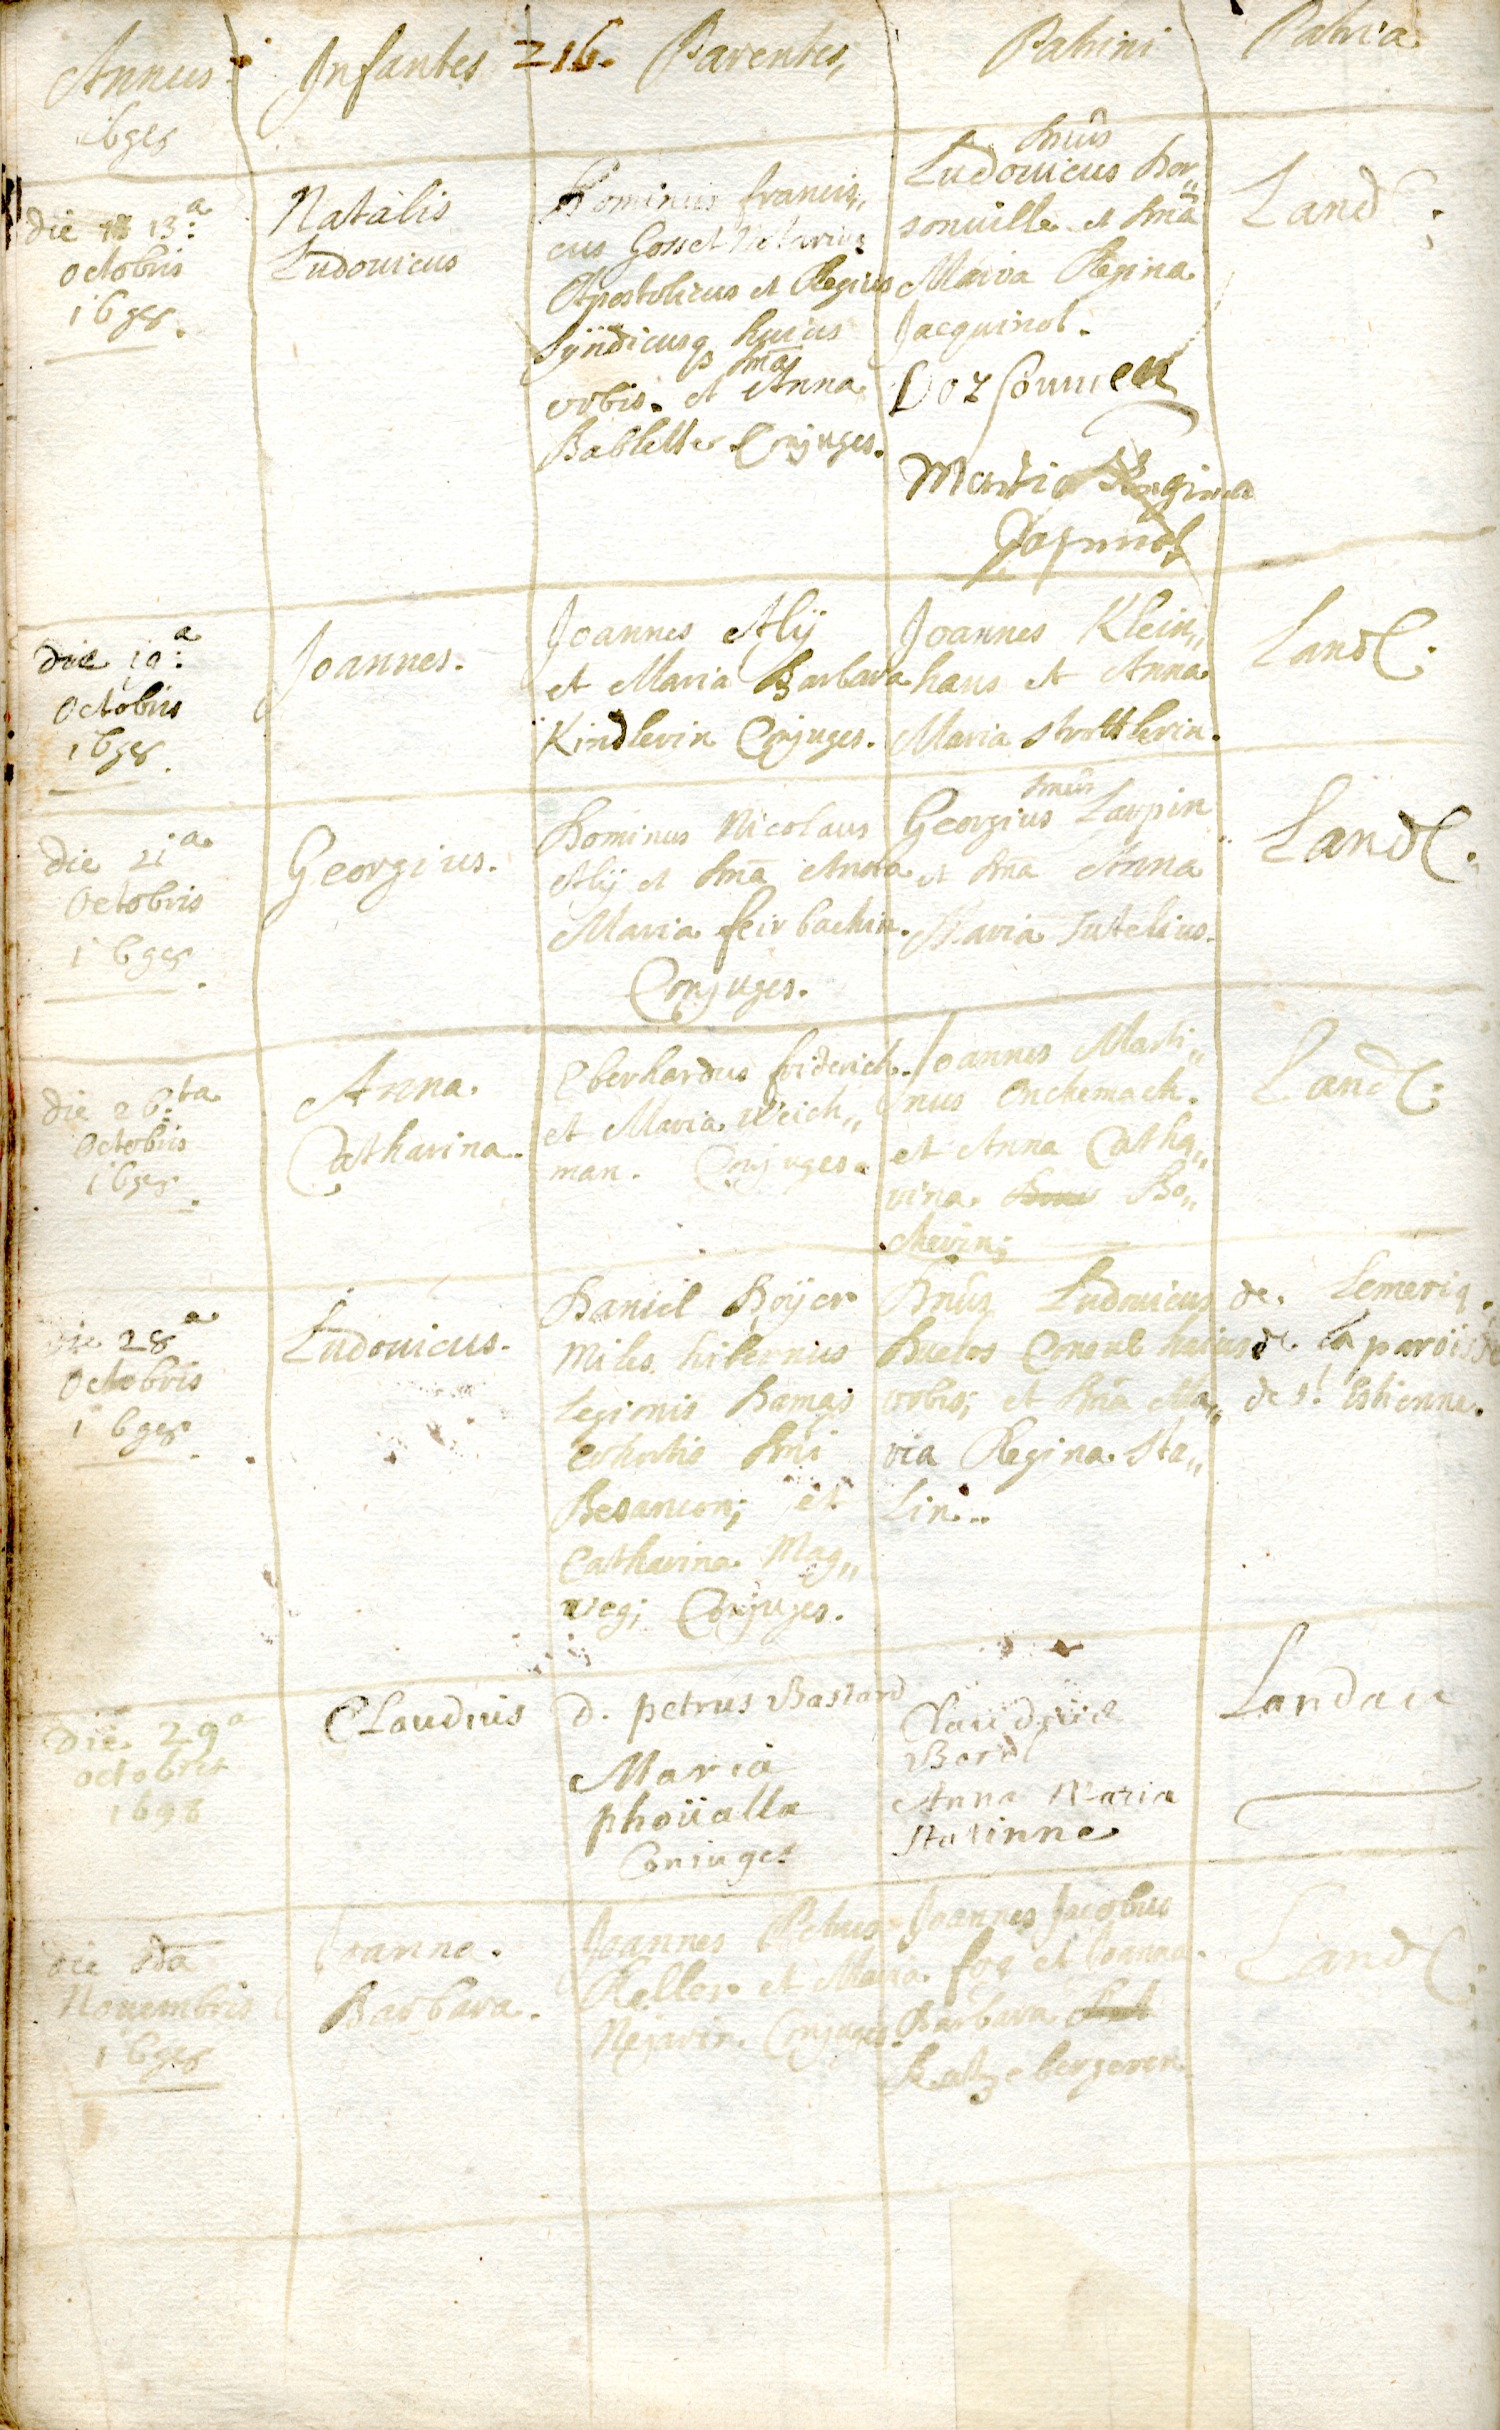 Annus. Infantes 216. Parentes, Patrini Patria
1698
die 13.a
octobris
1698.
Natalis
Ludovicus
Dominus francis,,
cus Gosset Notarius
Apostolicus et Regius
Syndicusq huius
vrbis. et dma Anna
Bablette Conjuges.
dnus
Ludovicus Dor,,
sonville et dna
Maria Regina
Jacquinot.
Maria Regina
Land:
die 19.a
Octobris
1698.
Joannes.
Joannes Alij
et Maria Barbara
Kindlerin Conjuges.
Joannes Klein,,
hans et Anna
Maria strottlerin.
Land.
die 21.a
Octobris
1698.
Georgius.
Dominus Nicolaus
Alij et dna Anna
Maria feirbachin.
Conjuges.
dnus
Georgius Larpin
et dna Anna
Maria Jutelius.
Land.
die 26.ta
Octobris
1698.
Anna.
Catharina.
Eberhardus friderich.
et Maria Weich,,
man. Conjuges.
Joannes Marti,,
nus Onckemach.
et Anna Catha,,
rina Bo,,
Land:
die 28a
Octobris
1698.
Ludovicus.
Daniel Boijer
Miles hibernus
Legionis Damas
cohortis dni
Besancon; et
Catharina Mag,,
weg; Conjuges.
Dnus Ludovicus
Buelos Consul huius
vrbis; et dna Ma,,
ria Regina Sta,,
lin..
de. Lemeriq.
de la paroisse
de st. Estienne.
Die 29a
octobris
1698
Claudius
d. petrus Bastard
Maria
phoüalla
Coniuges
Claudius
Anna Maria
Stalinne
Landaea
die 2da
Novembris
1698
Joanna.
Barbara.
Joannes Petrus
Keller et Maria
Nejarin. Conjuges.
Joannes Jacobus
fog et Joanna
Barbara
Katzebergeren
Land: